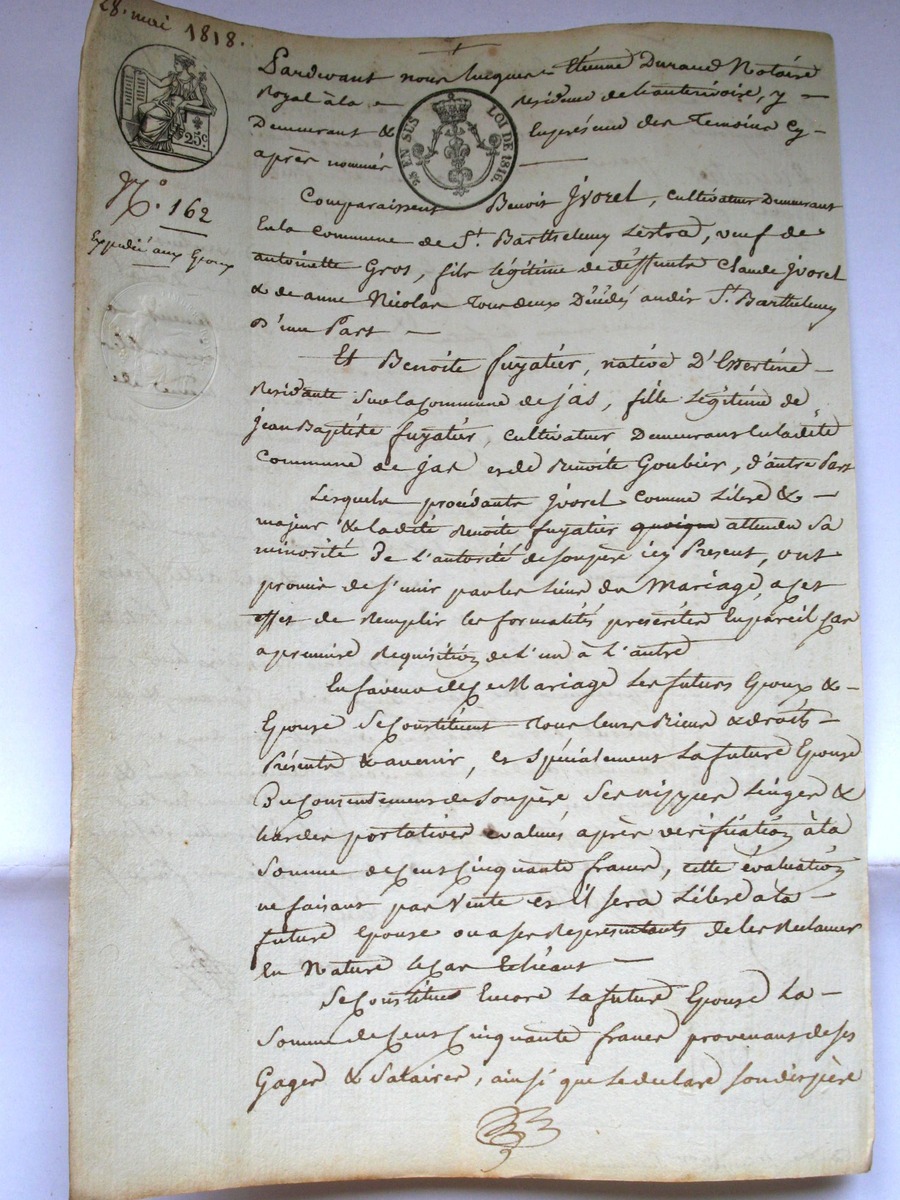 28. mai 1818.
25c
25 EN SUS
LOI DE 1816.
N.° 162
Expédié aux Epoux
Pardevant nous Etienne Durand Notaire
Royal à la Residence de , y
Demeurant & En présence des Temoins Cy-
après nommés
Comparaissent Benoit Jvorel, cultivateur Demeurant
En la Commune de St. Barthelemy Lestra, veuf de
antoinette Gros, fils légitime de deffunts Claude Jvorel
& de anne Nicolas Tous deux Décédés audit St. Barthelemy
D'une Part
Et Benoite fuyatier, native D'Essertine
Residante Sur la Commune de Jas, fille Légitime de
Jean Baptiste fuyatier, cultivateur Demeurant En ladite
Commune de Jas et de Benoite Goubier, d'autre Part
Lesquels procédants Jvorel comme Libre &
majeur & ladite Benoite fuyatier quoique attendu Sa
minorité De l'autorité de son père icy Present, ont
promis de S'unir par les Liens du Mariage, a cet
effet de Remplir les formalités prescrites En pareil Cas
a premiere Requisition de L'un à L'autre
En faveur de Ce Mariage Les futurs Epoux &
Epouse Se Constituent Tous leurs Biens & droits
Présents & avenir, et Spécialement La future Epouse
Du Consentement de Son père Ses nippes Linges &
hardes portatives évalués après vérification à la
Somme de Cent Cinquante francs, cette évaluation
ne faisant pas Vente et il Sera Libre a la
future Epouse ou a ses Représentants de les Reclamer
En Nature le Cas Echéant
Se Constitue Encore La future Epouse La
Somme de Cent Cinquante francs provenant de ses
Gages & Salaires, ainsi que Le declare Son dit père